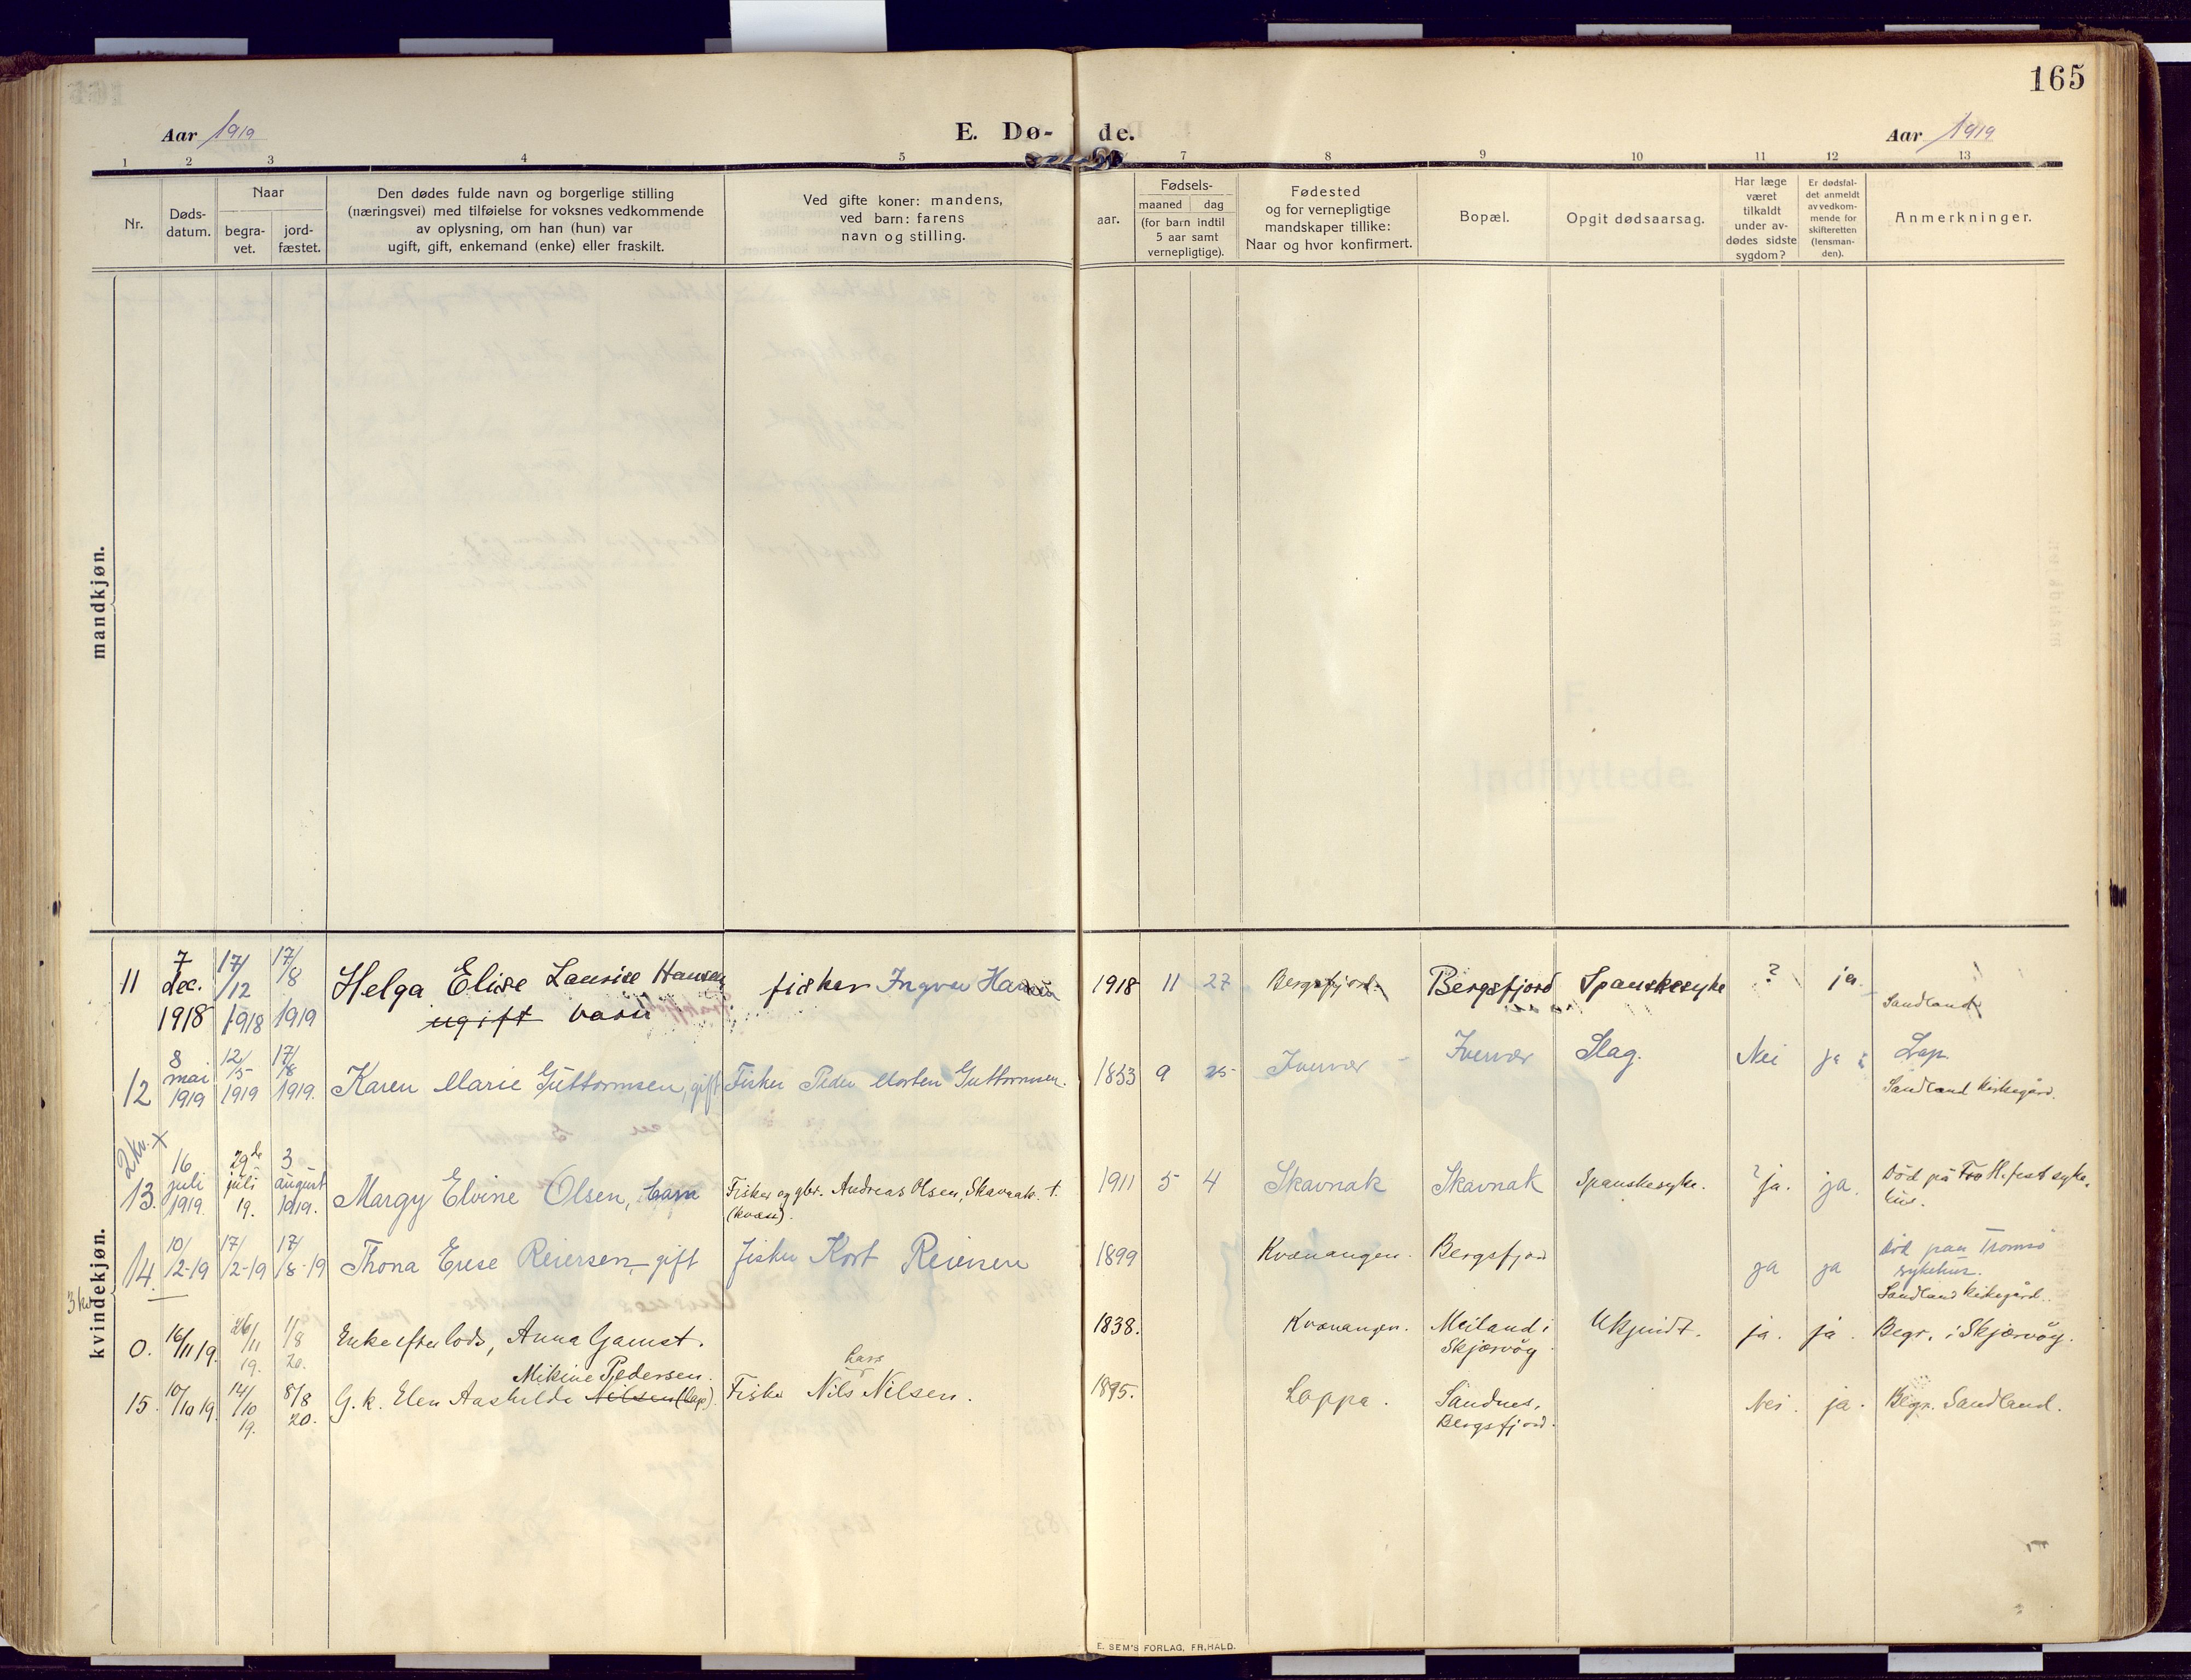 165
Aar 1919
E. Dø- de.
Aar 1919
1 2 3 4 5 7 8 9 10 11 12 13
Nr.
Døds-
datum.
Naar
begra-
vet.
jord-
fæstet.
Den dødes fulde navn og borgerlige stilling
(næringsvei) med tilføielse for voksnes vedkommende
av oplysning, om han (hun) var
ugift, gift, enkemand (enke) eller fraskilt.
Ved gifte koner: mandens,
ved barn: farens
navn og stilling.
aar.
Fødsels-
maaned dag
(for barn indtil
5 aar samt
vernepligtige).
Fødested
og for vernepligtige
mandskaper tillike:
Naar og hvor konfirmert.
Bopæl.
Opgit dødsaarsag.
Har læge
været
tilkaldt
under av-
dødes sidste
sygdom?
Er dødsfal-
det anmeldt
av vedkom-
mende for
skifteretten
(lensman-
den).
Anmerkninger.
mandkjøn.
kvindekjøn.
11 7 dec. 1918 17/12 1918 17/8 1919 Helga Elise Laurise Hansen fisker Ingvar Hansen 1918 11 27 Bergsfjord Bergsfjord Spanskesyke ? ja
ugift barn Sandland
12 8 mai 1919 12/5 1919 17/8 1919. Karen Marie Guttormsen, gift Fisker Peder Morten Guttormsen. 1853 9 25 Iversvær Iversvær Slag. Nei ja Lap
Sandland kirkegård.
2 kv. x
13. 16 juli 1919. 29de juli 19. 3 august 1919. Margy Elvine Olsen, barn Fisker og gbr. Andreas Olsen, Skavnak. †. 1911 5 4 Skavnak Skavnak Spanskesyke. ? ja. ja. Död på H.fest syke-
(kvæn). hus.
14. 10/2-19 17/2-19 17/8-19 Thona Reiersen, gift fisker Kort Reiersen 1899 Kvænangen. Bergsfjord ja ja Död paa Tromsö
sykehus.
Sandland kirkegård.
3 kv
0. 16/11 19. 26/11 19. 1/8 20. Enke efter lods, Anna Gamst. 1838. Kvænangen. Meiland i Skjærvöy. Ukjendt. ja. ja. Begr. i Skjærvöy.
Mikine Pedersen. Lars
15. 10/10 19. 14/10 19. 8/8 20. G. k. Elen Aashilde Nilsen (lap). Fisker Nils Nilsen. 1895. Loppa. Sandnes, Bergsfjord. Nei. ja. Begr. Sandland.
E. SEM'S FORLAG, FR,HALD.